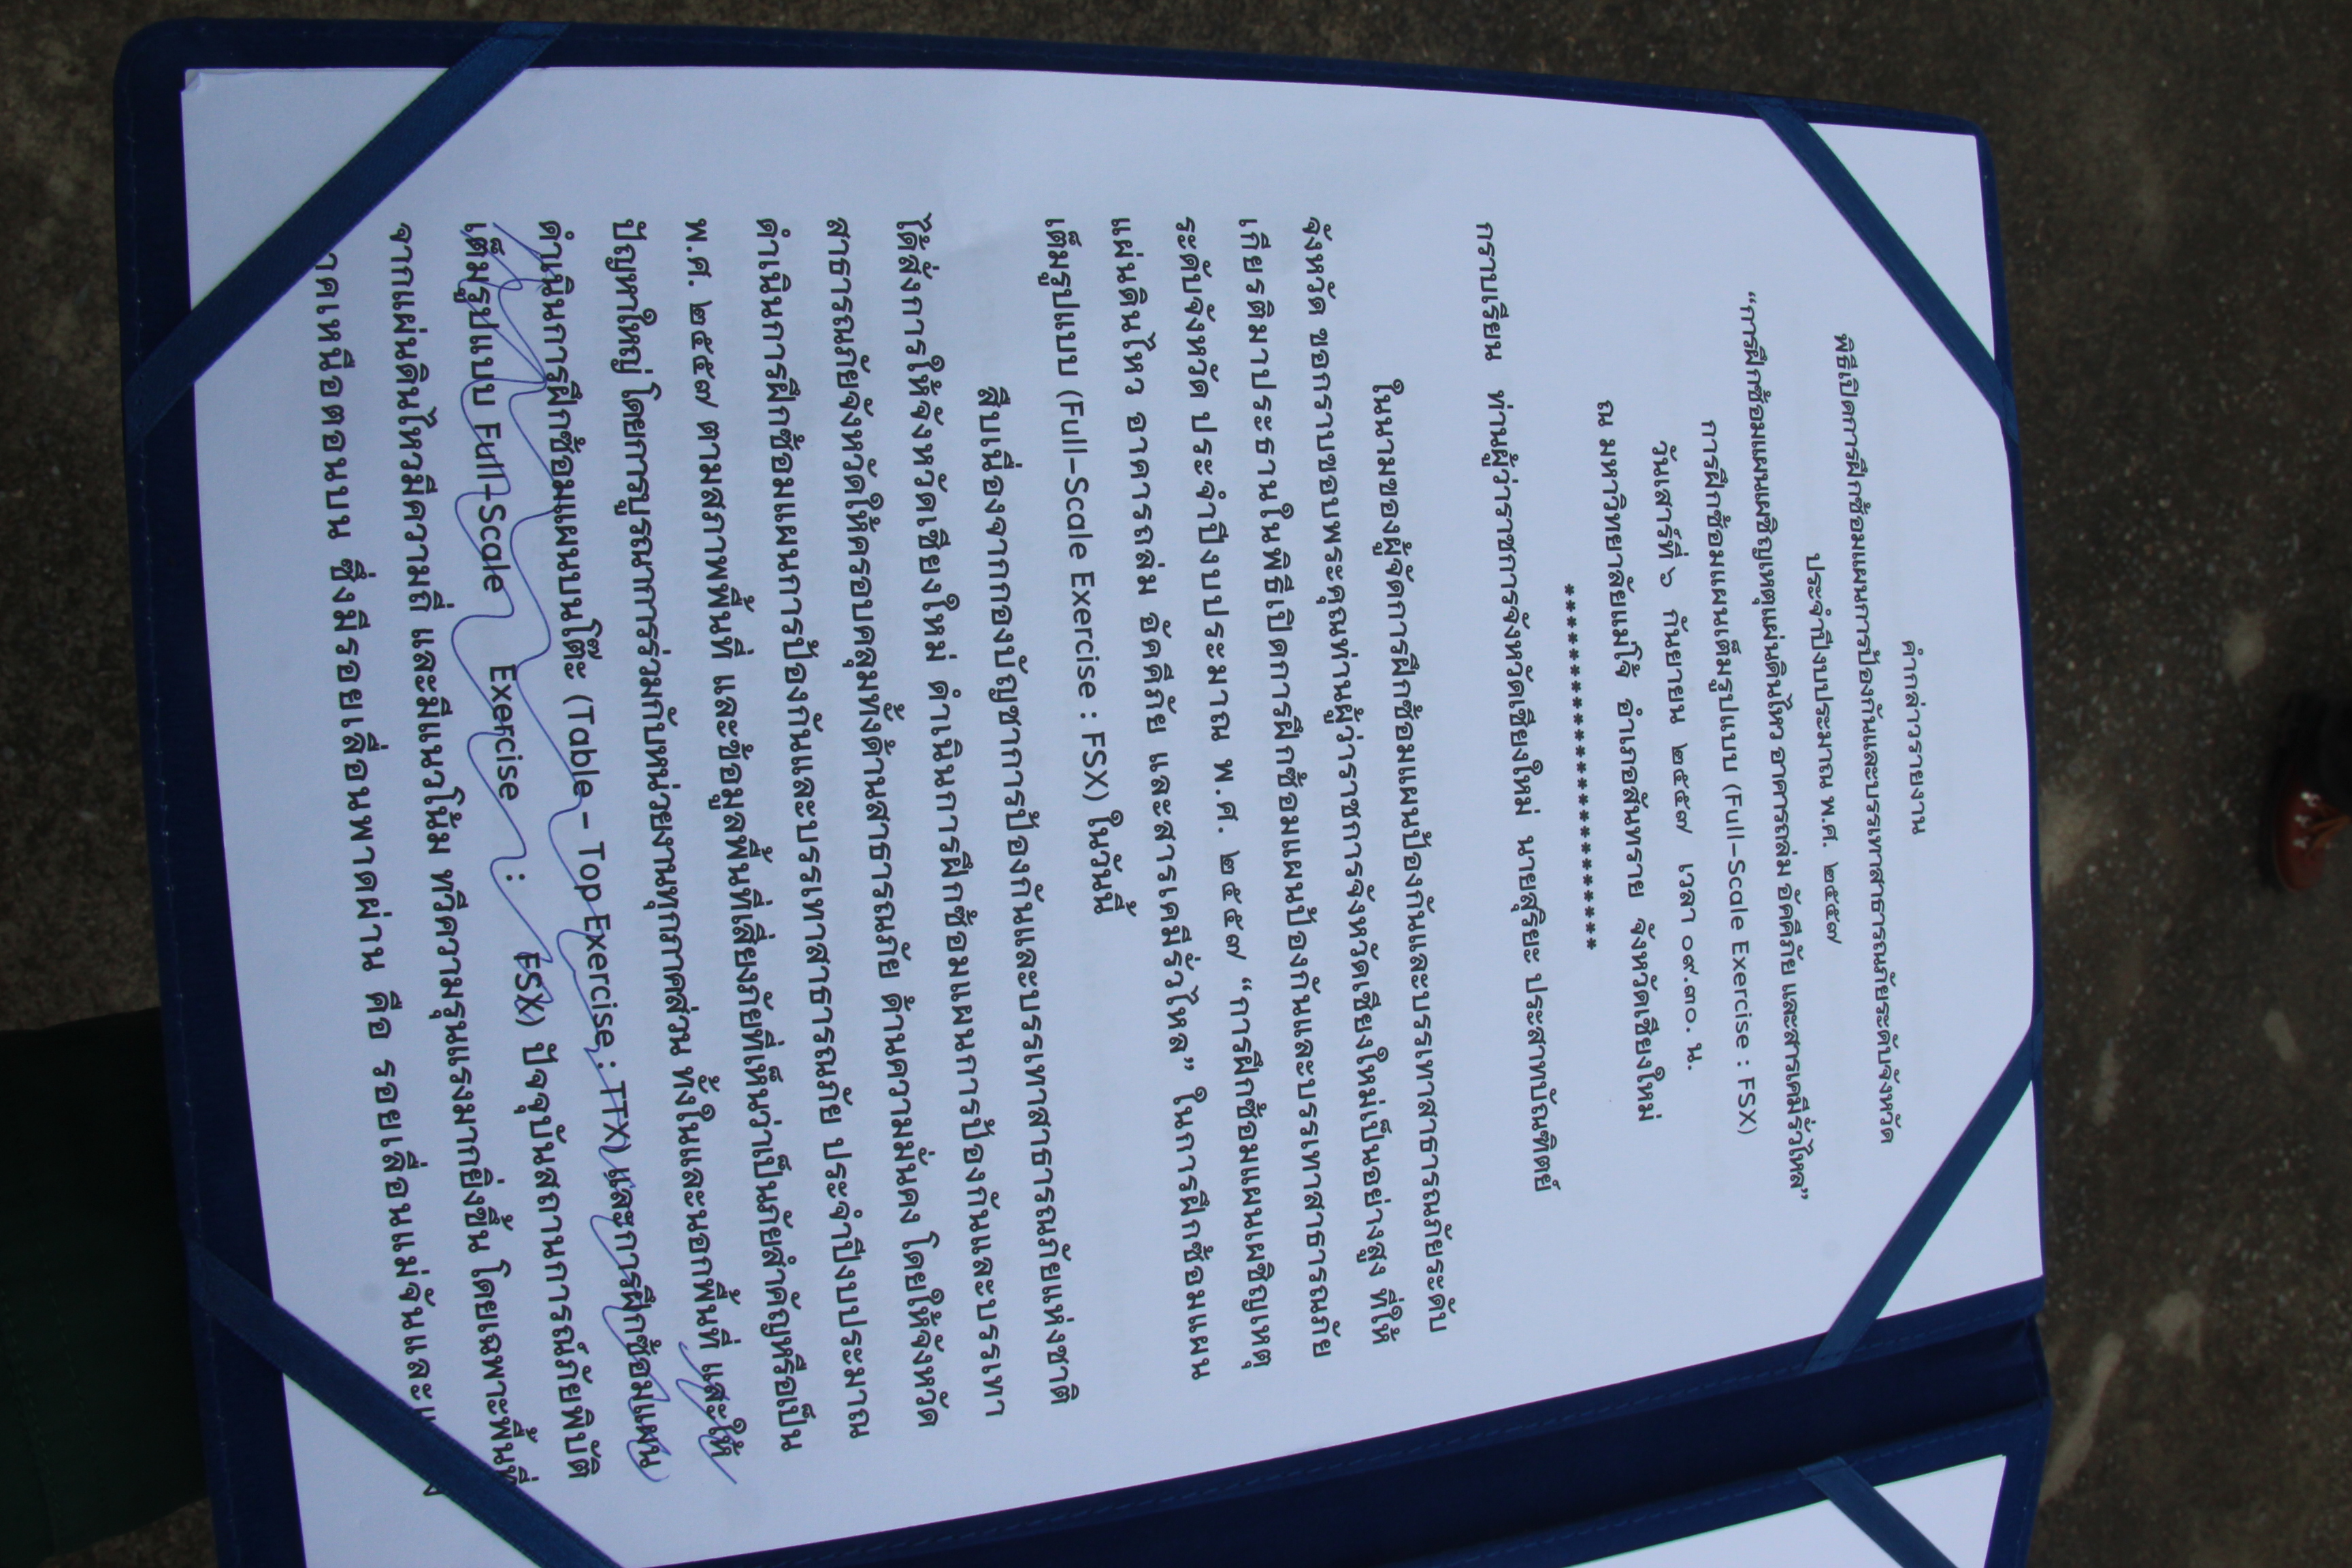 คำกล่าวรายงาน
พิธีเปิดการฝึกซ้อมแผนการป้องกันและบรรเทาสาธารณภัยระดับจังหวัด
ประจำปีงบประมาณ พ.ศ. ๒๕๕๗
“การฝึกซ้อมแผนเผชิญเหตุแผ่นดินไหว อาคารถล่ม อัคคีภัย และสารเคมีรั่วไหล”
การฝึกซ้อมแผนเต็มรูปแบบ (Full-Scale Exercise : FSX)
วันเสาร์ที่ ๖ กันยายน ๒๕๕๗ เวลา ๐๙.๓๐. น.
ณ มหาวิทยาลัยแม่โจ้ อำเภอสันทราย จังหวัดเชียงใหม่
**************************
กราบเรียน ท่านผู้ว่าราชการจังหวัดเชียงใหม่ นายสุริยะ ประสาทบัณฑิตย์
ในนามของผู้จัดการฝึกซ้อมแผนป้องกันและบรรเทาสาธารณภัยระดับ
จังหวัด ขอกราบขอบพระคุณท่านผู้ว่าราชการจังหวัดเชียงใหม่เป็นอย่างสูง ที่ให้
เกียรติมาประธานในพิธีเปิดการฝึกซ้อมแผนป้องกันและบรรเทาสาธารณภัย
ระดับจังหวัด ประจำปีงบประมาณ พ.ศ. ๒๕๕๗ “การฝึกซ้อมแผนเผชิญเหตุ
แผ่นดินไหว อาคารถล่ม อัคคีภัย และสารเคมีรั่วไหล” ในการฝึกซ้อมแผน
เต็มรูปแบบ (Full-Scale Exercise : FSX) ในวันนี้
สืบเนื่องจากกองบัญชาการป้องกันและบรรเทาสาธารณภัยแห่งชาติ
ได้สั่งการให้จังหวัดเชียงใหม่ ดำเนินการฝึกซ้อมแผนการป้องกันและบรรเทา
สาธารณภัยจังหวัดให้ครอบคลุมทั้งด้านสาธารณภัย ด้านความมั่นคง โดยให้จังหวัด
ดำเนินการฝึกซ้อมแผนการป้องกันและบรรเทาสาธารณภัย ประจำปีงบประมาณ
พ.ศ. ๒๕๕๗ ตามสภาพพื้นที่ และข้อมูลพื้นที่เสี่ยงภัยที่เห็นว่าเป็นภัยสำคัญหรือเป็น
ปัญหาใหญ่ โดยการบูรณาการร่วมกับหน่วยงานทุกภาคส่วน ทั้งในและนอกพื้นที่ และให้
ดำเนินการฝึกซ้อมแผนบนโต๊ะ (Table – Top Exercise : TTX) และการฝึกซ้อมแผน
เต็มรูปแบบ Full-Scale Exercise : FSX) ปัจจุบันสถานการณ์ภัยพิบัติ
จากแผ่นดินไหวมีความถี่ และมีแนวโน้ม ทวีความรุนแรงมากยิ่งขึ้น โดยเฉพาะพื้นที่
ภาคเหนือตอนบน ซึ่งมีรอยเลื่อนพาดผ่าน คือ รอยเลื่อนแม่จันและ